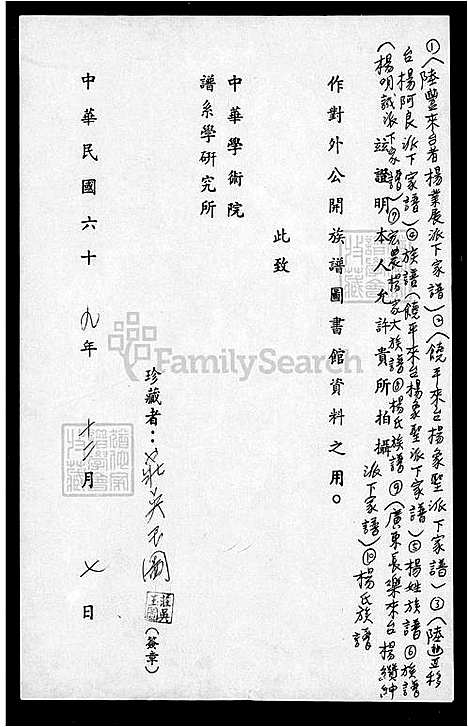 ①(陸豐來台者楊業辰派下家譜)②(饒平來台楊象聖派下家譜)③(陸豐移
台楊阿良派下家譜)④族譜(饒平來台楊象聖派下家譜)⑤楊姓族譜⑥族譜
(楊明誠派下家譜)⑦宏農楊家大族譜⑧楊氏族譜⑨(廣東長樂來台楊纘紳
派下家譜)⑩楊氏族譜
茲證明本人允許貴所拍攝
作對外公開族譜圖書館資料之用。
此致
中華學術院
譜系學研究所
珍藏者：莊吳玉圖
(簽章)
中華民國六十九年十二月七日
FamilySearch